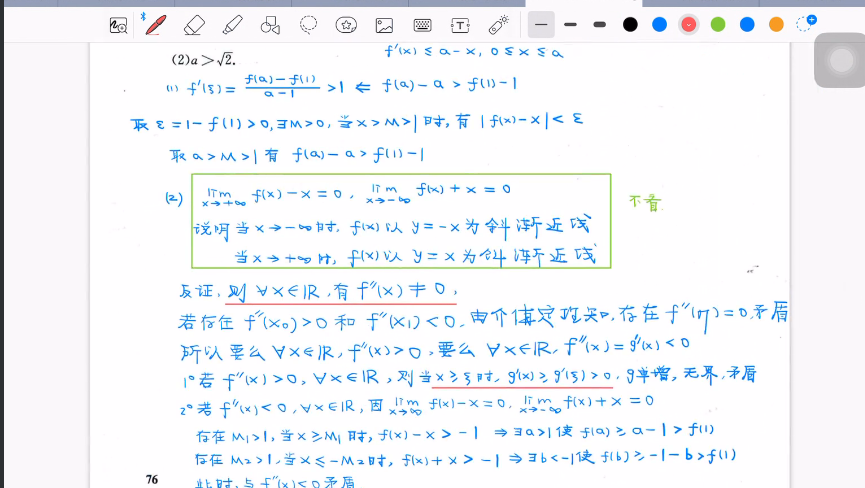 (2)a＞√2.
f'(x) ≤ a-x, 0≤x≤a
(1) f'(ξ) = (f(a)-f(1))/(a-1) >1 ⇐ f(a)-a > f(1)-1
取 ε=1-f(1)>0, ∃M>0, 当 x>M>1 时, 有 |f(x)-x|< ε
取 a>M>1 有 f(a)-a > f(1)-1
(2) lim x→+∞ f(x)-x=0, lim x→-∞ f(x)+x=0
不看
说明当 x→-∞时, f(x)以 y=-x 为斜渐近线
当 x→+∞时, f(x)以 y=x 为斜渐近线
反证, 则 ∀x∈ℝ, 有 f''(x) ≠ 0,
若存在 f''(x₀)>0 和 f''(x₁)<0, 由介值定理知, 存在 f''(η)=0, 矛盾
所以要么 ∀x∈ℝ, f''(x)>0, 要么 ∀x∈ℝ, f''(x)=g'(x)<0
1°若 f''(x)>0, ∀x∈ℝ, 则当 x≥ξ时, g'(x)≥g'(ξ)>0, g单增, 无界, 矛盾
2°若 f''(x)<0, ∀x∈ℝ, 因 lim x→∞ f(x)-x=0, lim x→-∞ f(x)+x=0
存在 M₁>1, 当 x≥M₁时, f(x)-x>-1 ⇒∃a>1使 f(a)≥a-1>f(1)
存在 M₂>1, 当 x≤-M₂时, f(x)+x>-1 ⇒∃b<-1使 f(b)≥-1-b>f(1)
76
此时, 与 f''(x)<0 矛盾